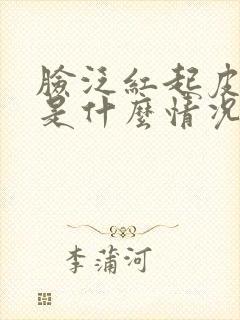 臉泛紅起皮
是什麼情況
李蒲河